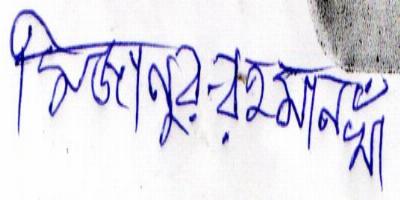 মিজানুর রহমান খাঁ